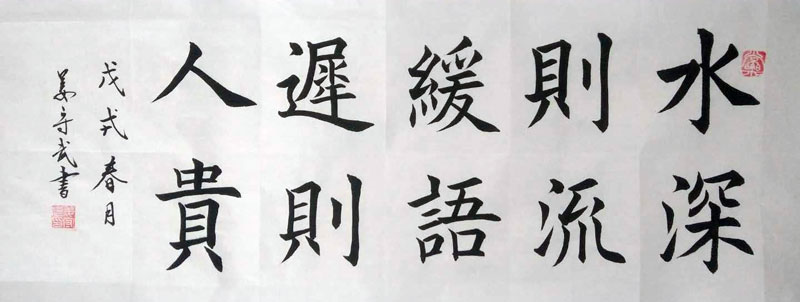 水深
則流
緩語
遲則
人貴
戊戌春月
姜守武書